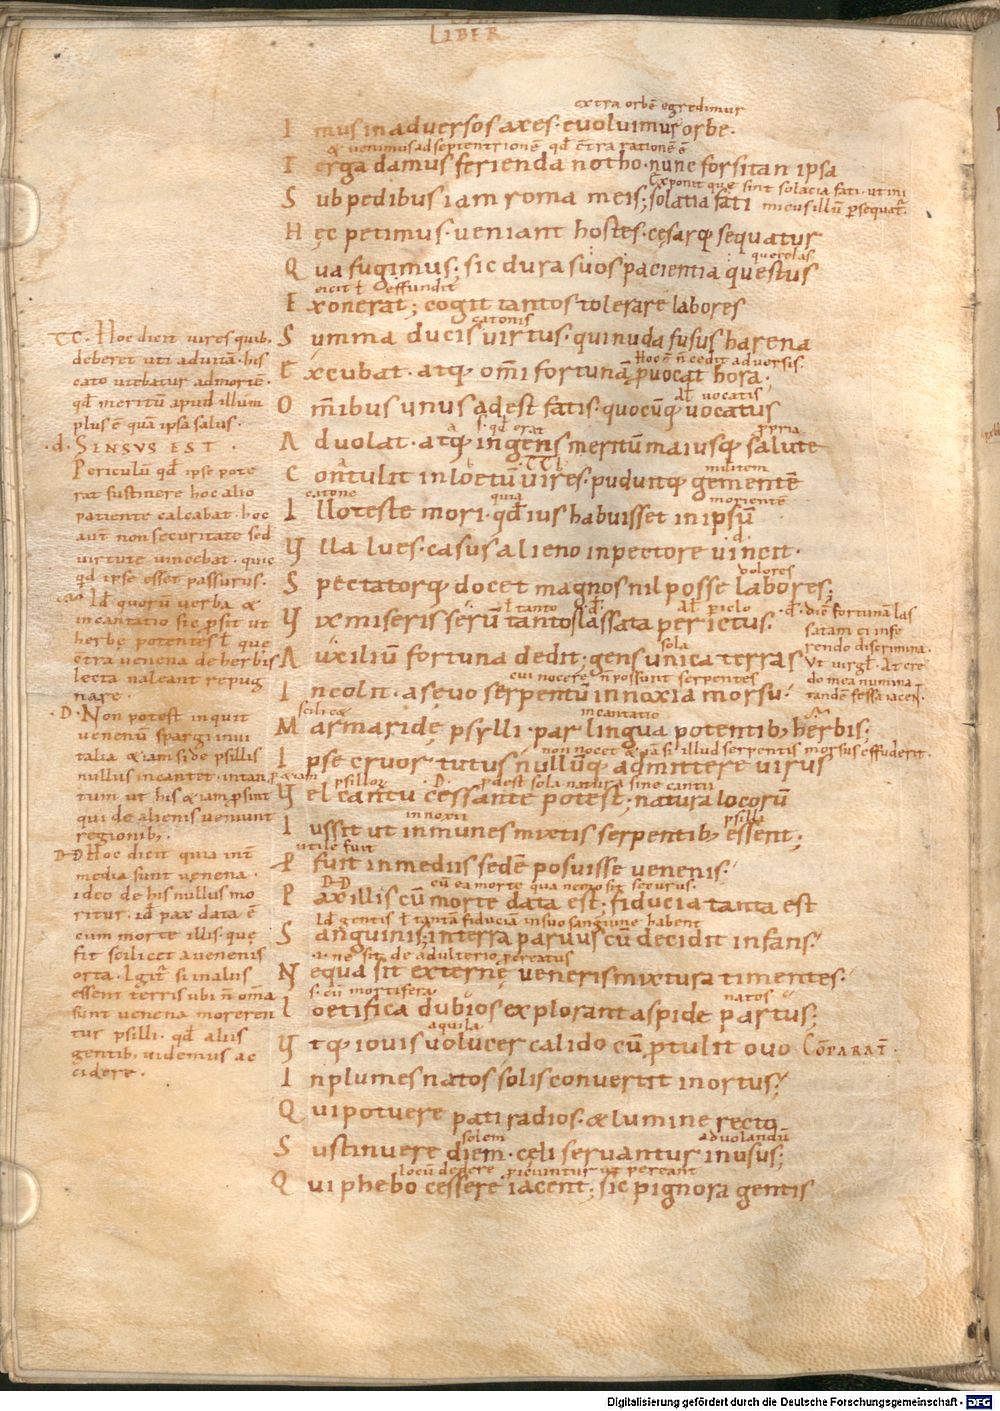 LIBER
extra orbē egredimur
I mus in adversos axes · euoluimus orbe ·
& uenimus ad septentrionē qđ c̄tra rationē ē
T erga damus ferienda notho · nunc forsitan ipsa
Exponit quę sint solacia fati · ut ini
S ub pedibus iam roma meis; solatia fati
micus illū p̄sequat̄ ·
H ęc petimus · ueniant hostes · cęsarq; sequatur
querelas
Q ua fugimus; sic dura suos pacientia questus
eicit ł effundit
E xonerat; cogit tantos tolerare labores
catonis
S umma ducis uirtus · qui nuda fusus harena
Hoc ē n̄ cedit adversis ·
E xcubat · atq; om̄i fortunā p̄uocat hora ·
ał uocatis
O m̄ibus unus adest fatis · quocūq; uocatus
s · qđ erat   p̄pria
A duolat · atq; ingens meritū maiusq; salute
militem
C ontulit in loetū uires · puduitq; gementē
catone   quia   morientē
I llo teste mori · qđ ius habuisset in ipsū
· d ·
U lla lues · casus alieno in pectore uincit ·
dolores
S pectatorq; docet magnos nil posse labores;
ł tanto · d · ał p̄iclo
U ix miseris serū tanto lassata periclis
sola
A uxiliū fortuna dedit; gens unica terras
cui nocere n̄ possunt serpentes
I ncolit · a sęuo serpentū innoxia morsu ·
scilicę   incantatio
M armaridę psylli · par lingua potentib; herbis;
non nocet & iā si illud serpentis morsus effuderit ·
I pse cruor tutus nullūq; admittere uirus
psillor̄ · D · p̄dest sola natura sine cantu
U el cantu cessante potest; natura locorū
innoxii   psilli
I ussit ut inmunes mixtis serpentib; essent;
utile fuit
P fuit in mediis sedē posuisse uenenis ·
DD   cū ea morte qua nemo sit securus ·
P ax illis cū morte data est; fiducia tanta est
Iđ gentis ł tantā fiduciā in suo sanguine habent
S anguinis; in terra paruus cū decidit infans ·
· i · ne sit de adulterio p̄creatus
N equa sit externę ueneris mixtura timentes ·
s · cū mortifera   natos
L oetifica dubios explorant aspide partus;
aquila
U tq; iouis uolucer calido cū p̄tulit ouo CŌPARAT̄ ·
I nplumes natos solis conuertit in ortus;
Q ui potuere pati radios · & lumine recto
solem   aduolandū
S ustinuere diem · cęli seruantur in usus;
locū dedere   piciuntur ut pereant
Q ui phebo cessere iacent; sic pignora gentis
TC · Hoc dicit uires quib;
deberet uti ad uitā · his
cato utebatur ad mortē ·
qđ meritū apud illum
plus ē quā ipsa salus ·
· d · SENSUS EST ·
Periculū qđ ipse pote
rat sustinere hoc alio
patiente calcabat · hoc
aut non securitate sed
uirtute uincebat · quic
qđ ipse esset passurus ·
Iđ quorū uerba &
incantatio sic p̄sit ut
herbę potentes ł que
c̄tra uenena de herbis
lecta ualeant repug
nare ·
· D · Non potest inquit
uenenū spargi inui
talia & iam si de psillis
nullus incantet · intan
tum ut his & iam p̄sint
qui de alienis ueniunt
regionib; ·
DD Hoc dicit quia int̄
media sunt uenena ·
ideo de his nullus mo
ritur · iđ pax data ē
cum morte illis · quę
fit scilicet a uenenis
orta · Igit̄ si in alus
essent terris ubi n̄ om̄a
sunt uenena moreren
tur psilli · qđ aliis
gentib; uidemus ac
cidere ·
· d · diē fortunā las
satam ei infe
rendo discrimina ·
Ut uirgł · At cre
do mea numina
tandē fessa iacen̄ ·
Digitalisierung gefördert durch die Deutsche Forschungsgemeinschaft - DFG